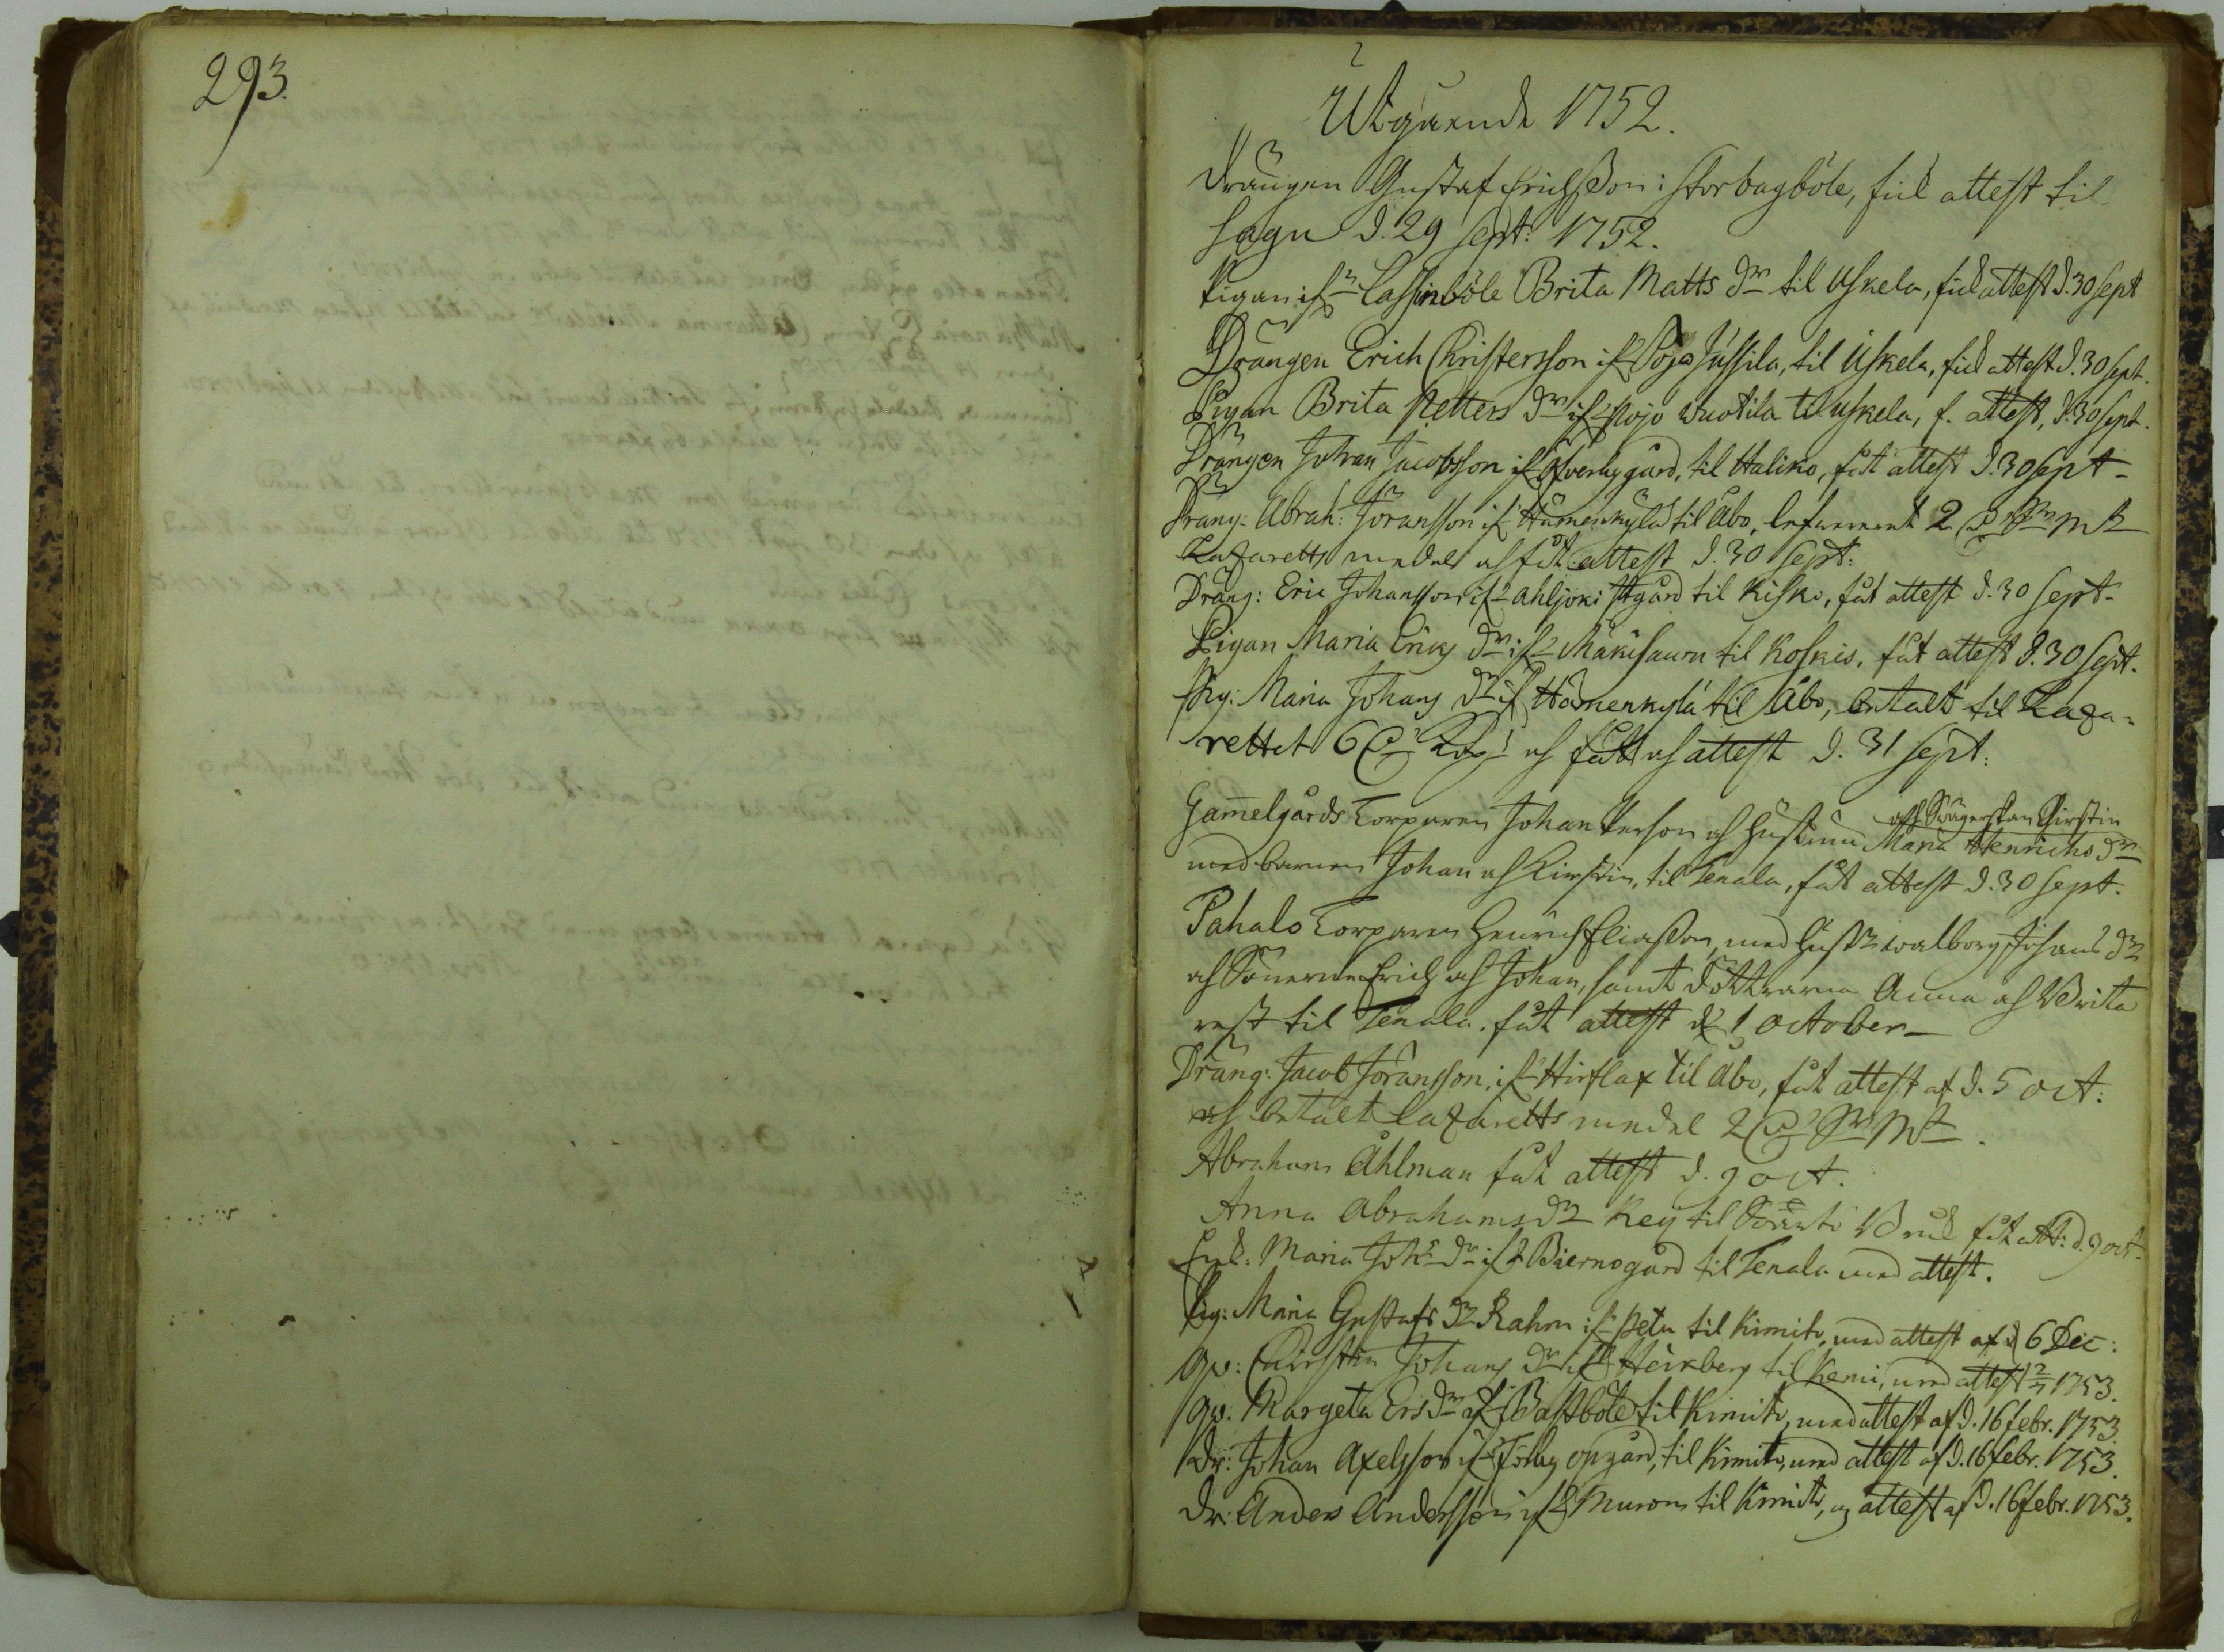 293.
Utgående 1752.
Drängen Gustaf Erichsson i Storbagböle, fick attest til
Sagu d. 29 Sept: 1752.
Pigan if:n Lassinböle Brita Matts dr til Uskela, fick attest d. 30 Sept
Drängen Erich Christersson ifr Pojo Jussila, til Uskela, fick attest d. 30 Sept.
Pigan Brita Petters dr ifr Pojo wuotila til uskela, f. attest, d. 30 Sept.
Drängen Johan Jacobsson ifr Öfverbygård, til Haliko, fåt attest d. 30 Sept
Dräng: Abrah: Jöransson ifr Hämenkylä til Åbo, 2
Lazaretts medel och fåt attest d. 30 Sept:
Dräng: Eric Johansson ifr ahljoki gård til Kisko, fåt attest d. 30 Sept
Pigan Maria Erics dr ifr Mäkisauru til Koskis, fåt attest d. 30 Sept.
Pig: Maria Johans dr if Hämenkylä til Åbo, betalt til Laza-
rettet 6 och fått attest d. 31 Sept:
och Svägerskan Christin
Gam̄elgårds Torparen Johan Persson och hustrun Maria Henrichs dr
med barnen Johan och Kirstin, til Tenala, fåt attest d. 30 Sept.
Pahalo Torparen Henrich Eliasson, med hustr walborg Johans dr
och Sönerne Erich och Johan, samt döttrarna Anna och Brita
rest til Tenala. fåt attest d 1 october
Dräng: Jacob Jöransson, ifr Hirslax til Åbo, fåt attest af d. 5 oct:
och betalt Lazaretts medel 2
Abraham Åhlman fåt attest d. 9 oct.
Anna Abrahams dr Key til Bruk fåt att: d. 9 oct.
Enk: Maria Joh: dr ifr Biernogård til Tenala med attest.
Pig: Maria Gustafs dr Rahm ifr Peta til Kimito, med attest af d 6 Dec:
Qv: Christin Johans dr ifr til Kemi, med attest 1753.
Qv: Margeta Ers dr if Bastböle til Kimito, med attest af d. 16 febr. 1753
Dr: Johan Axelsson ifr Förby opgård, til Kimito, med attest af d. 16 febr. 1753.
Dr: Anders Andersson ifr Murom til Kimito, attest af d. 16 febr. 1753.